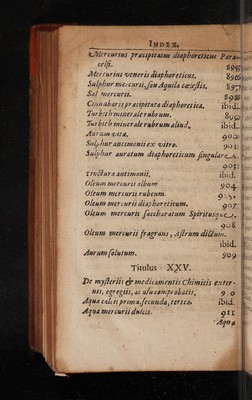 INDEX.
Mercurius præcipitatus diaphoreticus Para-
celsi. 895
Mercurius veneris diaphoreticus. 896
Sulphur mercurii, seu Aquila cœlestis. 897
Sal mercurii. 898
Cinnabaris præcipitata diaphoretica. ibid.
Turbith minerale rubrum. 899
Turbith minerale rubrum aliud. ibid.
Aurum vitæ. 900
Sulphur antimonii ex vitro. 901
Sulphur auratum diaphoreticum singulare.
ibid.
Tinctura antimonii. ibid.
Oleum mercurii album 904
Oleum mercurii rubeum.
Oleum mercurii diaphoreticum. 907
Oleum mercurii saccharatum Spiritusque.
908
Oleum mercurii fragrans, Astrum dictum.
ibid.
Aurum solutum. 909
Titulus XXV.
De mysteriis & medicamentis Chimicis exter-
nis, egregiis, ac usu comprobatis. 910
Aqua colcis prima, secunda, tertia. ibid.
Aqua mercurii dulcis. 911
Aqua